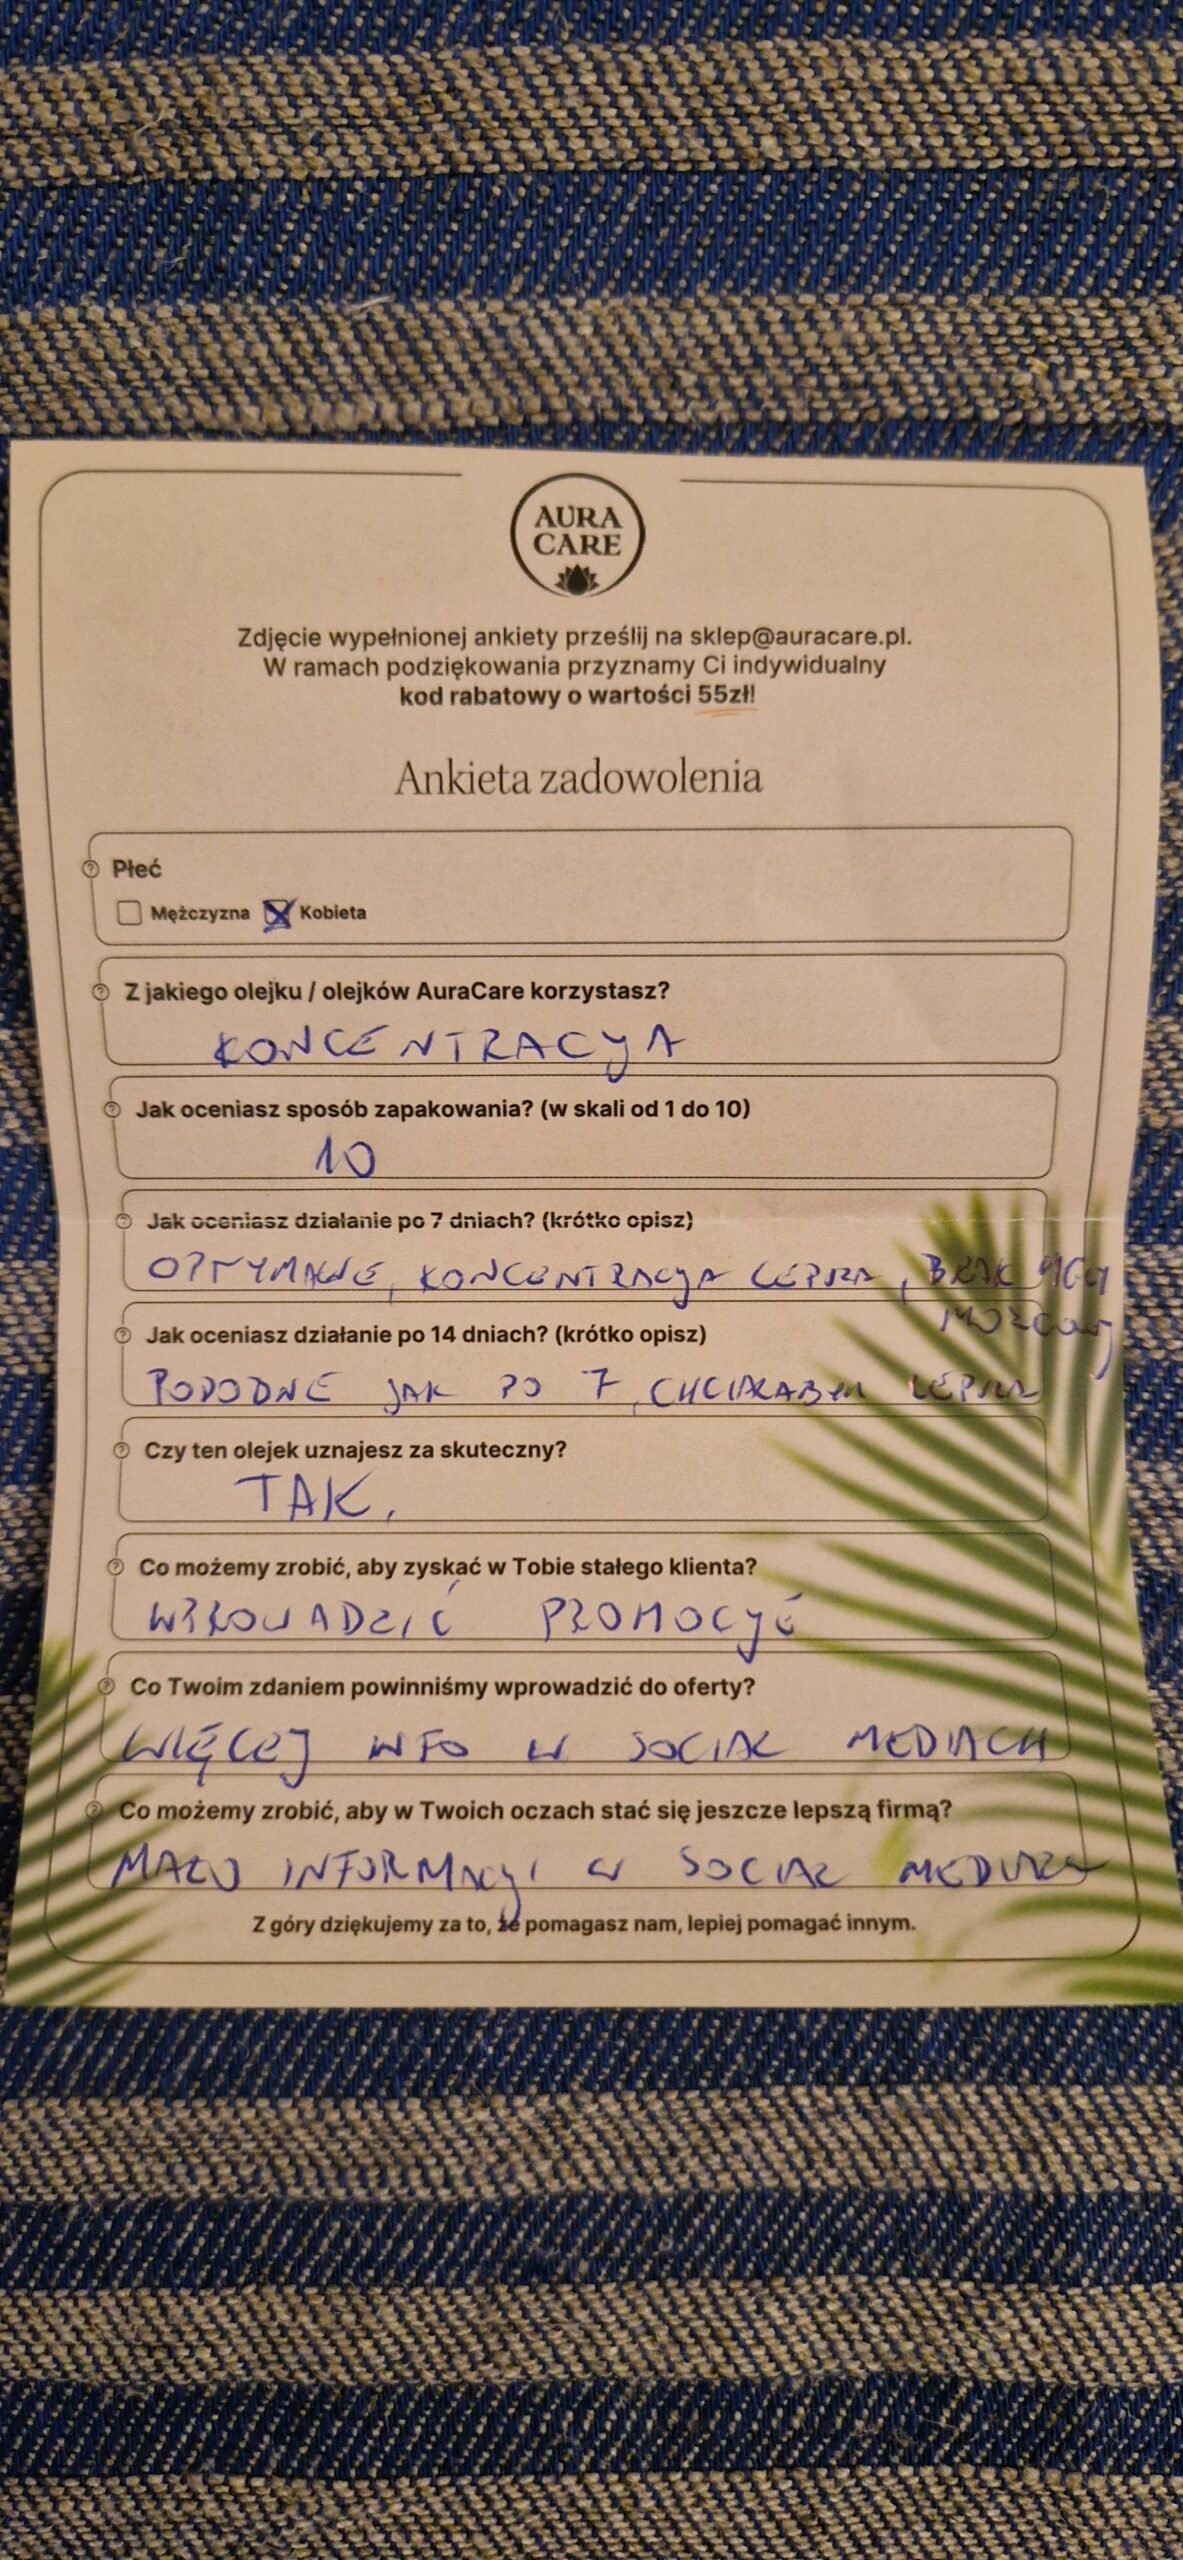 AURA
CARE
Zdjęcie wypełnionej ankiety prześlij na sklep@auracare.pl.
W ramach podziękowania przyznamy Ci indywidualny
kod rabatowy o wartości 55zł!
Ankieta zadowolenia
Płeć
Mężczyzna Kobieta
Z jakiego olejku / olejków AuraCare korzystasz?
KONCENTRACYJA
Jak oceniasz sposób zapakowania? (w skali od 1 do 10)
10
Jak oceniasz działanie po 7 dniach? (krótko opisz)
OPTYMALNE, KONCENTRACJA LEPSZA, BRAK MGŁY
MÓZGOWEJ
Jak oceniasz działanie po 14 dniach? (krótko opisz)
PODODNE JAK PO 7, CHCIAŁABYM
Czy ten olejek uznajesz za skuteczny?
TAK.
Co możemy zrobić, aby zyskać w Tobie stałego klienta?
WPROWADZIĆ PROMOCJĘ
Co Twoim zdaniem powinniśmy wprowadzić do oferty?
WIĘCEJ INFO W SOCIAL MEDIACH
Co możemy zrobić, aby w Twoich oczach stać się jeszcze lepszą firmą?
MAŁO INFORMACJI W SOCIAL MEDIACH
Z góry dziękujemy za to, że pomagasz nam, lepiej pomagać innym.